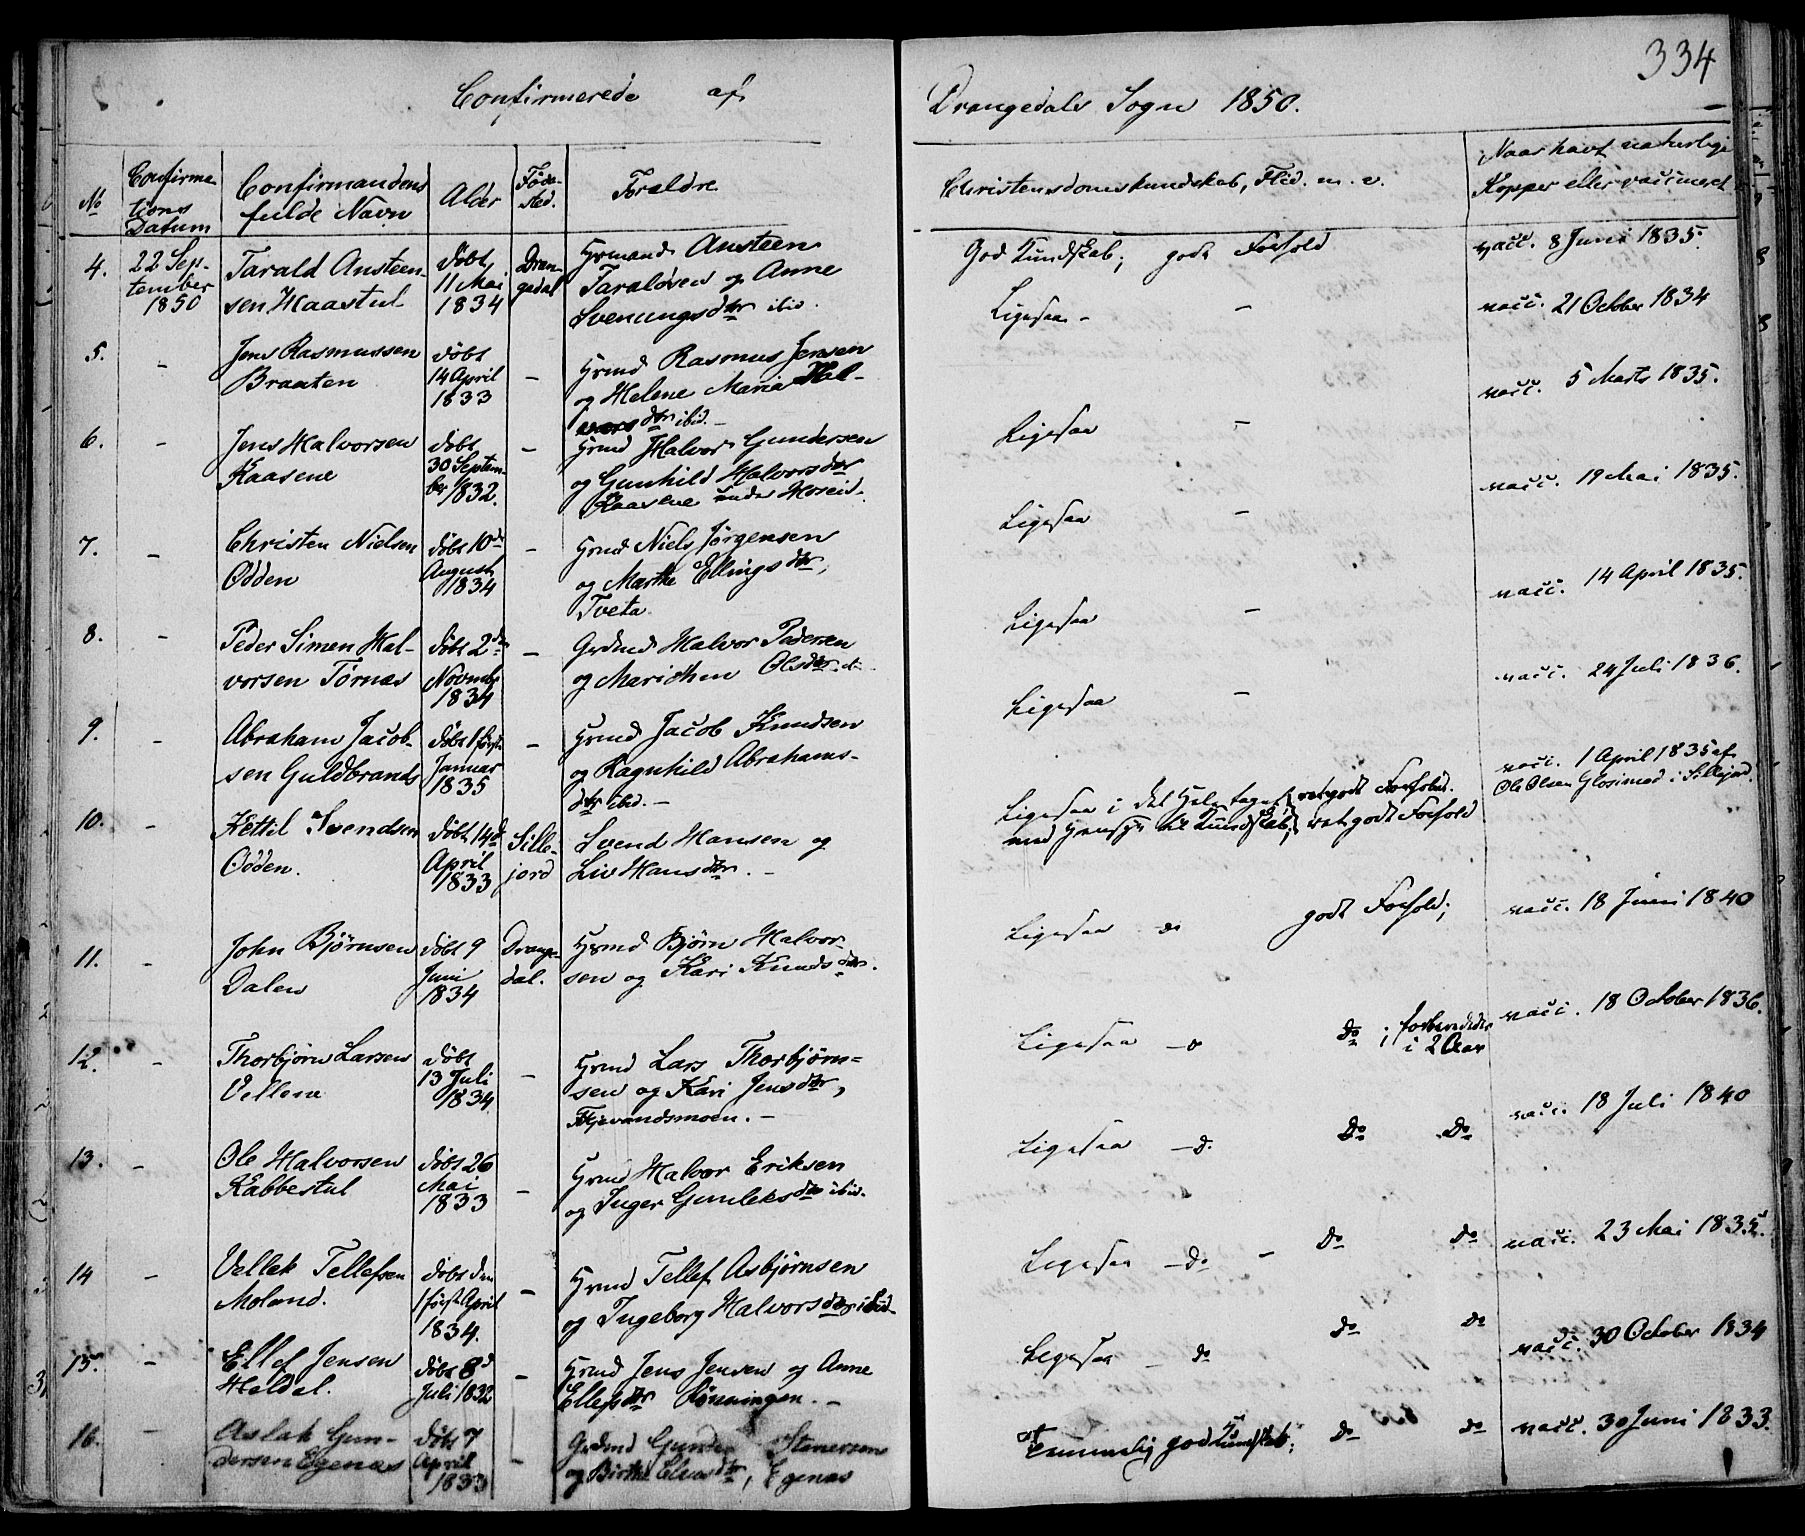 334
Confirmerede af
Drangedals Sogn 1850.
No
Confirma-
tions
Datum
Confirmandens
fulde Navn
Alder
Føde-
sted.
Forældre
Christendomskundskab, Flid. m. v.
Naar havt naturlige
Kopper eller vaccineret
4.
22 Sep-
tember
1850
Tarald Austeen-
sen Haastul
døbt
11 Mai
1834
Dran-
gedal
Austeen
Taraldsen og Anne
Svenungsdtr ibid.
God Kundskab; godt Forhold
vacc. 8 Juni 1835.
5.
-
Jens Rasmussen
Braaten
døbt
14 April
1833
-
Grmd Rasmus Jensen
og Helene Maria Hal-
vorsdtr ibid.-
Ligesaa -
-
vacc. 21 October 1834
6.
-
Jens Halvorsen
Kaasene
døbt
30 Septem-
ber 1832.
-
Grmd Halvor Gundersen
og Gunhild Halvorsdtr
Kaasene under Horeid.
Ligesaa
-
vacc. 5 Marts 1835.
7.
-
Christen Nielsen
Odden
døbt 10de
August
1834
-
Grmd Niels Jørgensen
og Marthe Ellingsdtr,
Tveta.
Ligesaa
-
vacc. 19 Mai 1835.
8.
-
Peder Simen Hal-
vorsen Tørnæs
døbt 2den
Novmb
1834
-
Grdmd Halvor Pedersen
og Marichen Olsdtr
Ligesaa
-
vacc. 14 April 1835.
9.
-
Abraham Jacob-
sen Guldbrands
døbt 1 første
Januar
1835
-
Grmd Jacob Knudsen
og Ragnhild Abrahams-
dtr ibid.-
Ligesaa
-
vacc. 24 Juli 1836.
10.
-
Kettil Svendsen
Odden.
døbt 14d
April
1833
Sille-
jord
Svend Hansen og
Liv Hansdtr.-
Ligesaa i det Hele taget, ret godt Forhold.
med Hensyn til Kundskab; ret godt Forhold
vacc. 1 April 1835 af
Ole Olsen Glosimod i Sillejord.
11.
-
John Bjørnsen
Dalen
døbt 9
Juni
1834
Drange-
dal.
Grmd Bjørn Halvor-
sen og Kari Knudsdtr.
Ligesaa do godt Forhold;
vacc. 18 Juni 1840
12.
-
Thorbjørn Larsen
Vellene
døbt
13 Juli
1834
-
Grmd Lars Thorbjørn-
sen og Kari Jensdtr,
Ligesaa - do Do;
i 2 Aar
vacc. 18 October 1836.
13.
-
Ole Halvorsen
Kabbestul
døbt 26
Mai
1833
-
Grmd Halvor Eriksen
og Inger Gunleksdtr ibid.
Ligesaa - do Do Do
vacc. 18 Juli 1840
14
-
Vellek Tellefsen
Moland.
døbt den
1 første April
1834.
-
Grmd Tellef Asbjørnsen
og Ingeborg Halvorsdtr ibid.
Ligesaa - do - Do Do
vacc. 23 Mai 1835.
15.
-
Ellef Jensen
Heldal.
døbt 8d
Juli 1832
-
Grmd Jens Jensen og Anne
Ellefsdtr Rønningen.-
Ligesaa - do Do do
vacc. 30 October 1834
16.
-
Aslak Gun-
dersen Egenæs
døbt 7
April
1833
-
Grdmd Gunder Stenersen
og Birthe Elvasdtr, Egenæs
Temmelig god Kundskab; do do
vacc. 30 Juni 1833.